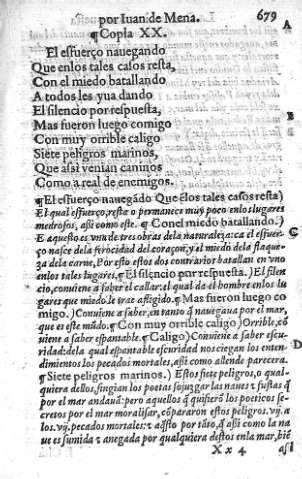 por Iuan de Mena. 679
¶Copla XX.
A
El esfuerço nauegando
Que enlos tales casos resta,
Con el miedo batallando
A todos les yua dando
El silencio por respuesta,
B
Mas fueron luego comigo
Con muy orrible caligo
Siete peligros marinos,
Que assi venian caninos
Como a real de enemigos.
¶El esfuerço nauegãdo Que ẽlos tales casos resta)
El qual esfuerço, resta o permanece muy poco enlos lugares
medrosos, assi como este. ¶Con el miedo batallando.)
C
E aquesto es vna de tres obras dela naturaleza: ca el esfuer-
ço nasce dela ferocidad del coraçon, y el miedo dela flaque-
za dela carne, Por esto estos dos contrarios batallan en vno
enlos tales lugares, ¶El silencio por respuesta.) El silen
cio, conuiene a saber el callar: el qual da el hombre enlos lu
gares que miedo le trae afligido. ¶Mas fueron luego co
migo.) Conuiene a saber, en tanto q̃ nauegaua por el mar,
que es este mũdo. ¶Con muy orrible caligo) Orrible, cõ
uiene a saber espantable. ¶Caligo) Conuiene a saber escu-
D
ridad: dela qual espantable escuridad nos ciegan los enten
dimientos los pecados mortales, assi como allende parecera.
¶Siete peligros marinos.) Estos siete peligros, o qual-
quiera dellos, fingian los poetas sojuzgar las naues & fustas q̃
por el mar andauã: pero aquellos q̃ quisierõ los poeticos se-
cretos por el mar moralisar, cõpararon estos peligros. vij. a
los. vij. pecados mortales: & aq̃sto por tãto, q̃ assi como la na
ue es sumida & anegada por qualquiera destos enla mar, biẽ
X x 4 assi